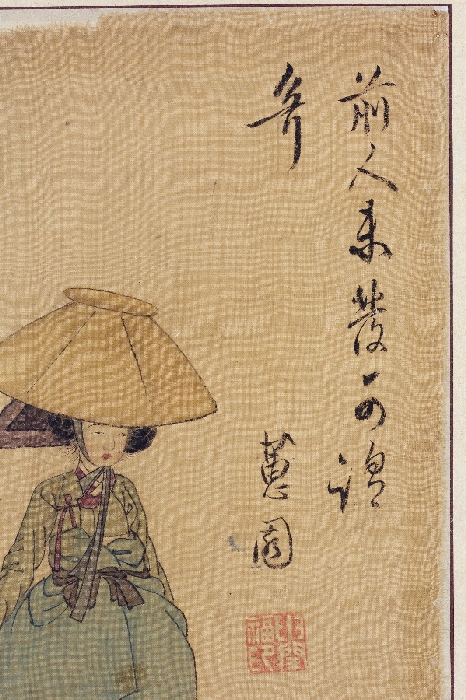 前人未發可謂
奇
蕙園